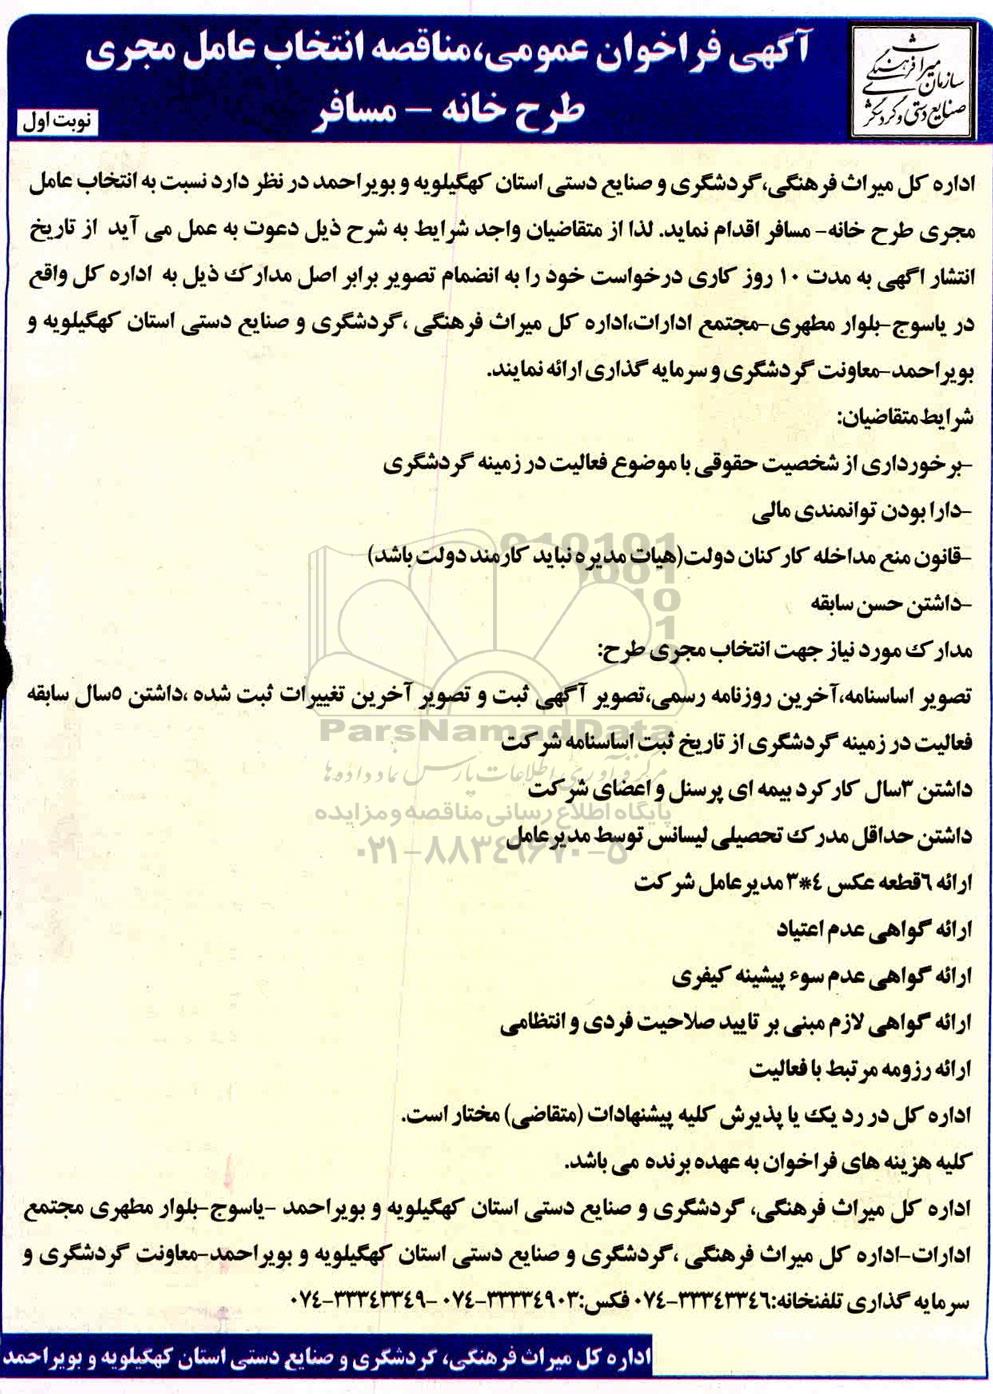 سازمان میراث فرهنگی
صنایع دستی و گردشگری
آگهی فراخوان عمومی،مناقصه انتخاب عامل مجری
طرح خانه – مسافر
نوبت اول
اداره کل میراث فرهنگی،گردشگری و صنایع دستی استان کهگیلویه و بویراحمد در نظر دارد نسبت به انتخاب عامل
مجری طرح خانه- مسافر اقدام نماید. لذا از متقاضیان واجد شرایط به شرح ذیل دعوت به عمل می آید از تاریخ
انتشار اگهی به مدت ۱۰ روز کاری درخواست خود را به انضمام تصویر برابر اصل مدارک ذیل به اداره کل واقع
در یاسوج-بلوار مطهری-مجتمع ادارات،اداره کل میراث فرهنگی ،گردشگری و صنایع دستی استان کهگیلویه و
بویراحمد-معاونت گردشگری و سرمایه گذاری ارائه نمایند.
شرایط متقاضیان:
-برخورداری از شخصیت حقوقی با موضوع فعالیت در زمینه گردشگری
-دارا بودن توانمندی مالی
-قانون منع مداخله کارکنان دولت(هیات مدیره نباید کارمند دولت باشد)
-داشتن حسن سابقه
مدارک مورد نیاز جهت انتخاب مجری طرح:
تصویر اساسنامه،آخرین روزنامه رسمی،تصویر آگهی ثبت و تصویر آخرین تغییرات ثبت شده ،داشتن ۵سال سابقه
فعالیت در زمینه گردشگری از تاریخ ثبت اساسنامه شرکت
ParsNamadData
مرکز فرآوری اطلاعات پارس نماد داده ها
داشتن ۳سال کارکرد بیمه ای پرسنل و اعضای شرکت
پایگاه اطلاع رسانی مناقصه و مزایده
داشتن حداقل مدرک تحصیلی لیسانس توسط مدیرعامل
۰۲۱-۸۸۳۴۹۶۷۰-۵
ارائه ۶قطعه عکس ۴*۳ مدیرعامل شرکت
ارائه گواهی عدم اعتیاد
ارائه گواهی عدم سوء پیشینه کیفری
ارائه گواهی لازم مبنی بر تایید صلاحیت فردی و انتظامی
ارائه رزومه مرتبط با فعالیت
اداره کل در رد یک یا پذیرش کلیه پیشنهادات (متقاضی) مختار است.
کلیه هزینه های فراخوان به عهده برنده می باشد.
اداره کل میراث فرهنگی، گردشگری و صنایع دستی استان کهگیلویه و بویراحمد -یاسوج-بلوار مطهری مجتمع
ادارات-اداره کل میراث فرهنگی ،گردشگری و صنایع دستی استان کهگیلویه و بویراحمد-معاونت گردشگری و
سرمایه گذاری تلفنخانه:۳۳۳۴۳۳۴۶-۰۷۴ فکس:۳۳۳۳۴۹۰۳-۰۷۴ -۳۳۳۴۳۳۴۹-۰۷۴
اداره کل میراث فرهنگی، گردشگری و صنایع دستی استان کهگیلویه و بویراحمد